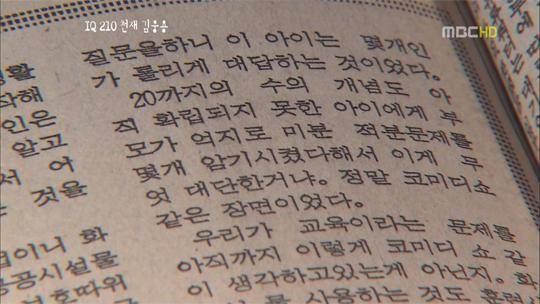 IQ 210 천재 김웅용
MBC HD
질문을하니 이 아이는 몇개인
가 틀리게 대답하는 것이었다.
20까지의 수의 개념도 아
직 확립되지 못한 아이에게 부
모가 억지로 미분 적분문제를
몇개 암기시켰다해서 이게 무
엇 대단한거냐. 정말 코미디쇼
같은 장면이었다.
우리가 교육이라는 문제를
아직까지 이렇게 코미디 쇼 같
이 생각하고있는게 아닌지. 화
사용하는 것도
인은
알고
서 어
것을
이니 화
공공시설물